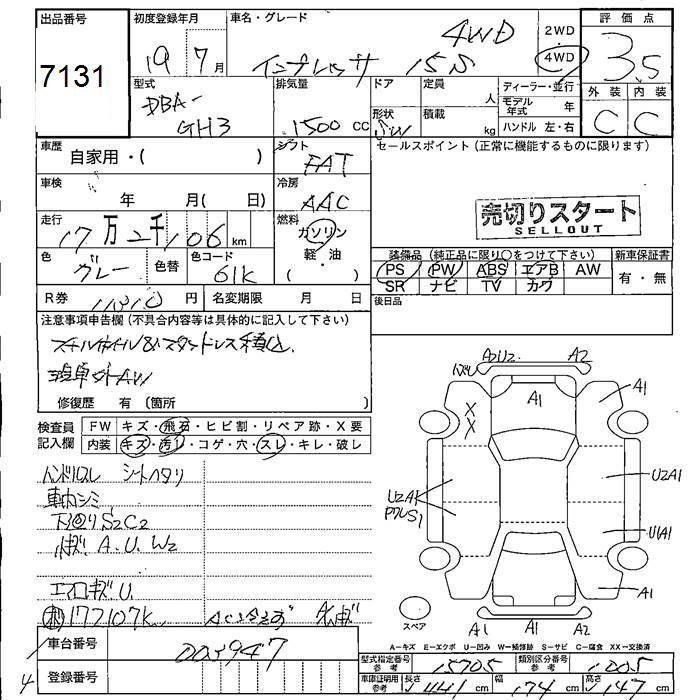 出品番号
7131
初度登録年月
19 7月
車名・グレード
インプレッサ 15S 4WD
2WD
4WD
評価点
3.5
外装 内装
C C
型式
DBA-
GH3
排気量
1500 cc
ドア
形状
SW
定員
人
積載
kg
ディーラー・並行
モデル年式 年
ハンドル 左・右
車歴
自家用・( )
シフト
FAT
セールスポイント (正常に機能するものに限ります)
車検
年 月( 日)
冷房
AAC
売切りスタート
SELLOUT
走行
17万2千106 km
燃料
ガソリン
軽・油
( )
色
グレー
色替
色コード
61K
装備品 (純正品に限り○をつけて下さい)
PS PW ABS エアB AW
SR ナビ TV カワ
新車保証書
有・無
R券
円
名変期限 月 日
後日品
注意事項申告欄 (不具合内容等は具体的に記入して下さい)
修復歴 有 (箇所 )
検査員
記入欄
FW キズ・飛石・ヒビ割・リペア跡・X要
内装 キズ・汚レ・コゲ・穴・スレ・キレ・破レ
ハンドルスレ シートヘタリ
車内シミ
下回りS2C2
A.U.W2
エアロキズ.U.
177107K
車台番号
003947
登録番号
A2U2 A2
A1
A1
X
X
U2A1
U2A1
U1A1
A1
スペア
A1 A1 A2
A-キズ E-エクボ U-凹み W-補修跡 S-サビ C-腐食 XX-交換済
型式指定番号 参考
15705
類別区分番号 参考
1005
車庫証明用 参考
長さ 441 cm
幅 174 cm
高さ 147 cm